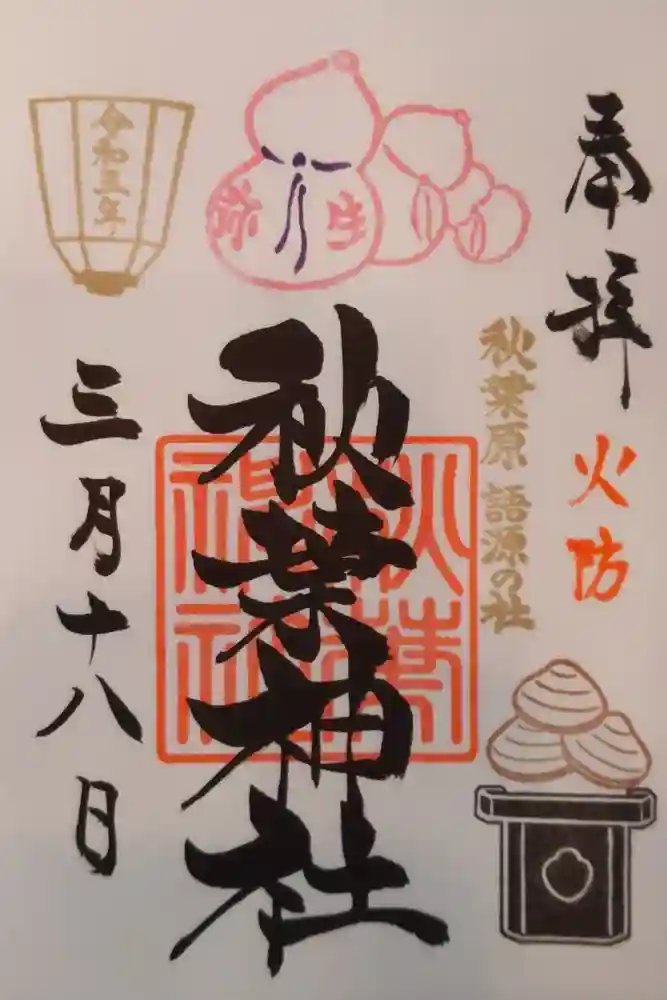 奉拝
火防
秋葉原 語源の社
弥生
秋葉神社
秋葉
神社
令和三年
三月十八日